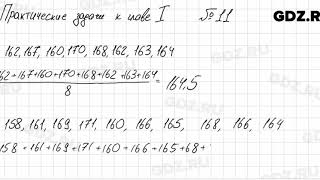 Практические задачи к главе I № 11
GDZ.R
162, 167, 160, 170, 168, 162, 163, 164
162+167+160+170+168+162+163+164
8
= 164.5
158, 161, 169, 171, 160, 166, 165, 168, 166, 164
158 + 161 + 169 + 171 + 160 + 166 + 165 + 68 +
GDZ.RU